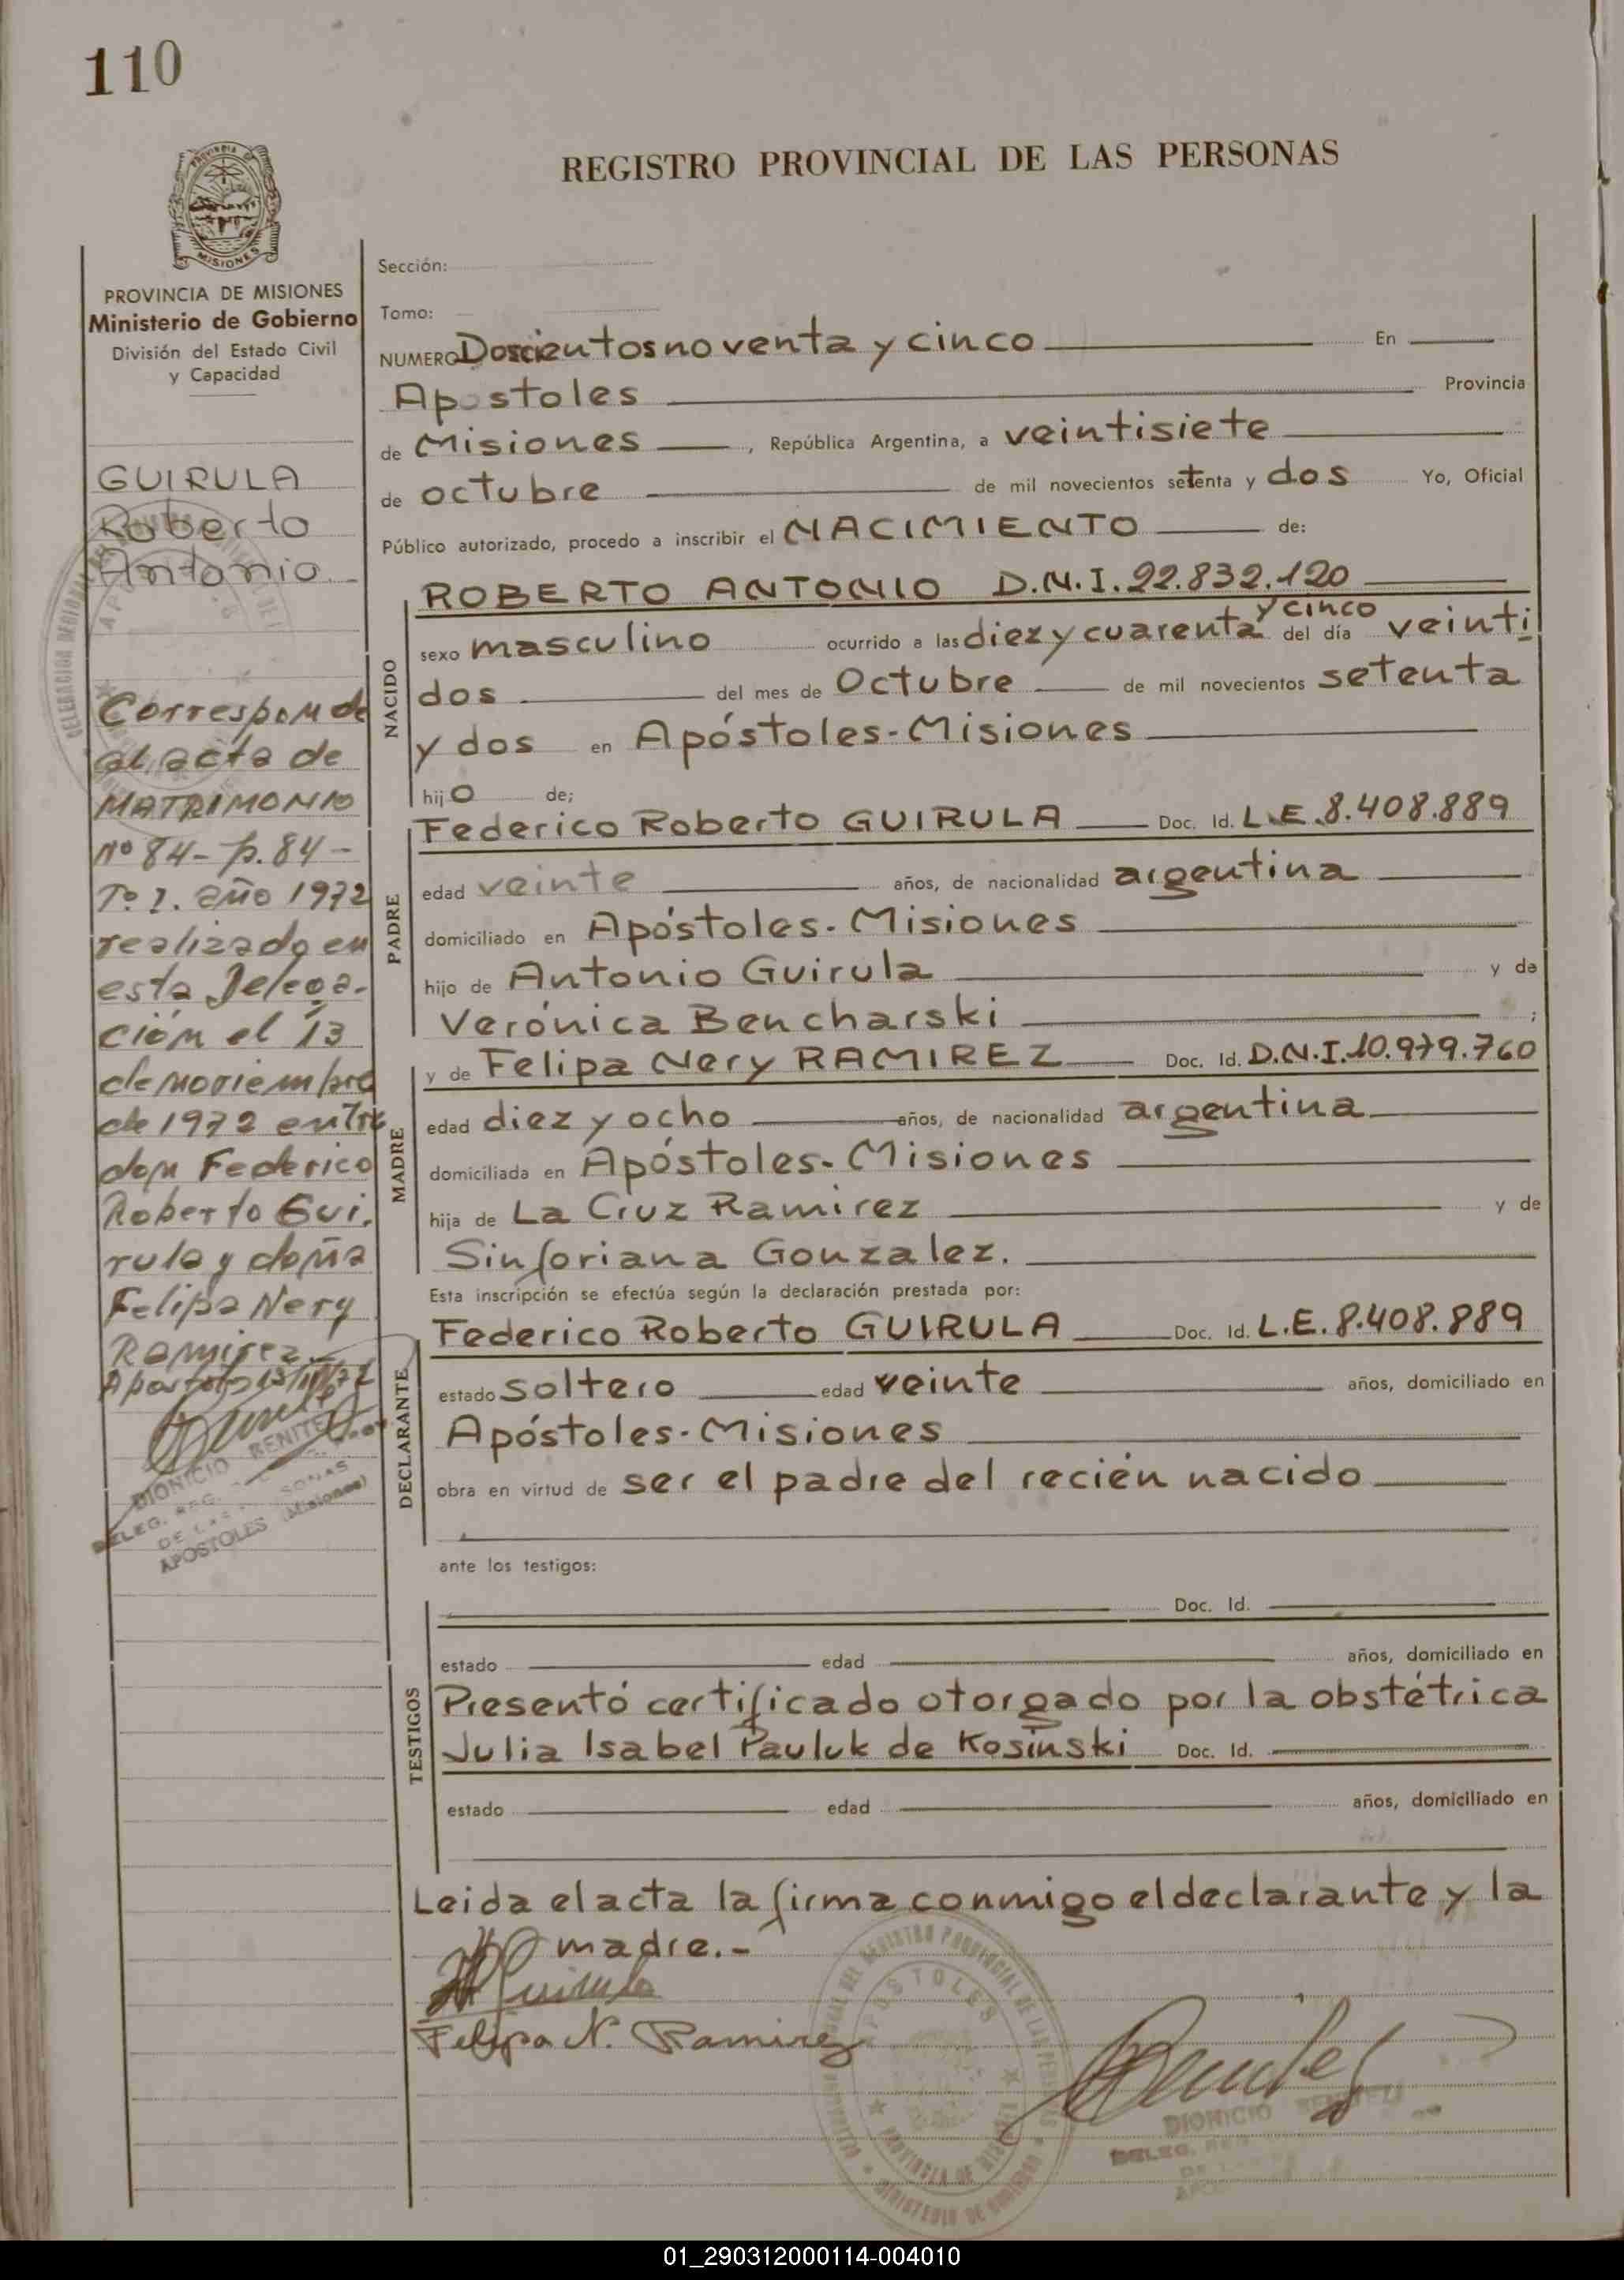 110
REGISTRO PROVINCIAL DE LAS PERSONAS
PROVINCIA DE MISIONES
Ministerio de Gobierno
División del Estado Civil
y Capacidad
GUIRULA
Roberto
Antonio.-
Corresponde
al acta de
MATRIMONIO
nº 84 - p. 84 -
Tº 1. año 1972
realizado en
esta Delega-
ción el 13
de noviembre
de 1972 entre
don Federico
Roberto Gui.
rula y doña
Felipa Nery
Ramirez.-
DIONICIO BENITEZ
DELEG. REG.
DE LAS PERSONAS
APOSTOLES (Misiones)
Sección:
Tomo:
NUMERO Doscientos noventa y cinco En
Apostoles Provincia
de Misiones, República Argentina, a veintisiete
de octubre de mil novecientos setenta y dos Yo, Oficial
Público autorizado, procedo a inscribir el NACIMIENTO de:
NACIDO
ROBERTO ANTONIO D.N.I. 22.832.120
sexo masculino ocurrido a las diez y cuarenta y cinco del día veinti
dos del mes de Octubre de mil novecientos setenta
y dos en Apóstoles-Misiones
hijo de;
PADRE
Federico Roberto GUIRULA Doc. Id. L.E. 8.408.889
edad veinte años, de nacionalidad argentina
domiciliado en Apóstoles-Misiones
hijo de Antonio Guirula y de
Verónica Bencharski ;
MADRE
y de Felipa Nery RAMIREZ Doc. Id. D.N.I. 10.979.760
edad diez y ocho años, de nacionalidad argentina
domiciliada en Apóstoles-Misiones
hija de La Cruz Ramirez y de
Sinforiana Gonzalez.
Esta inscripción se efectúa según la declaración prestada por:
DECLARANTE
Federico Roberto GUIRULA Doc. Id. L.E. 8.408.889
estado soltero edad veinte años, domiciliado en
Apóstoles-Misiones
obra en virtud de ser el padre del recién nacido
ante los testigos:
TESTIGOS
Doc. Id.
estado edad años, domiciliado en
Presentó certificado otorgado por la obstétrica
Julia Isabel Pauluk de Kosinski Doc. Id.
estado edad años, domiciliado en
Leida el acta la firma conmigo el declarante y la
madre.-
Guirula
Felipa N. Ramirez
APOSTOLES
PROVINCIA DE MISIONES
MINISTERIO DE GOBIERNO
DIONICIO BENITEZ
DELEG. REG.
01_290312000114-004010